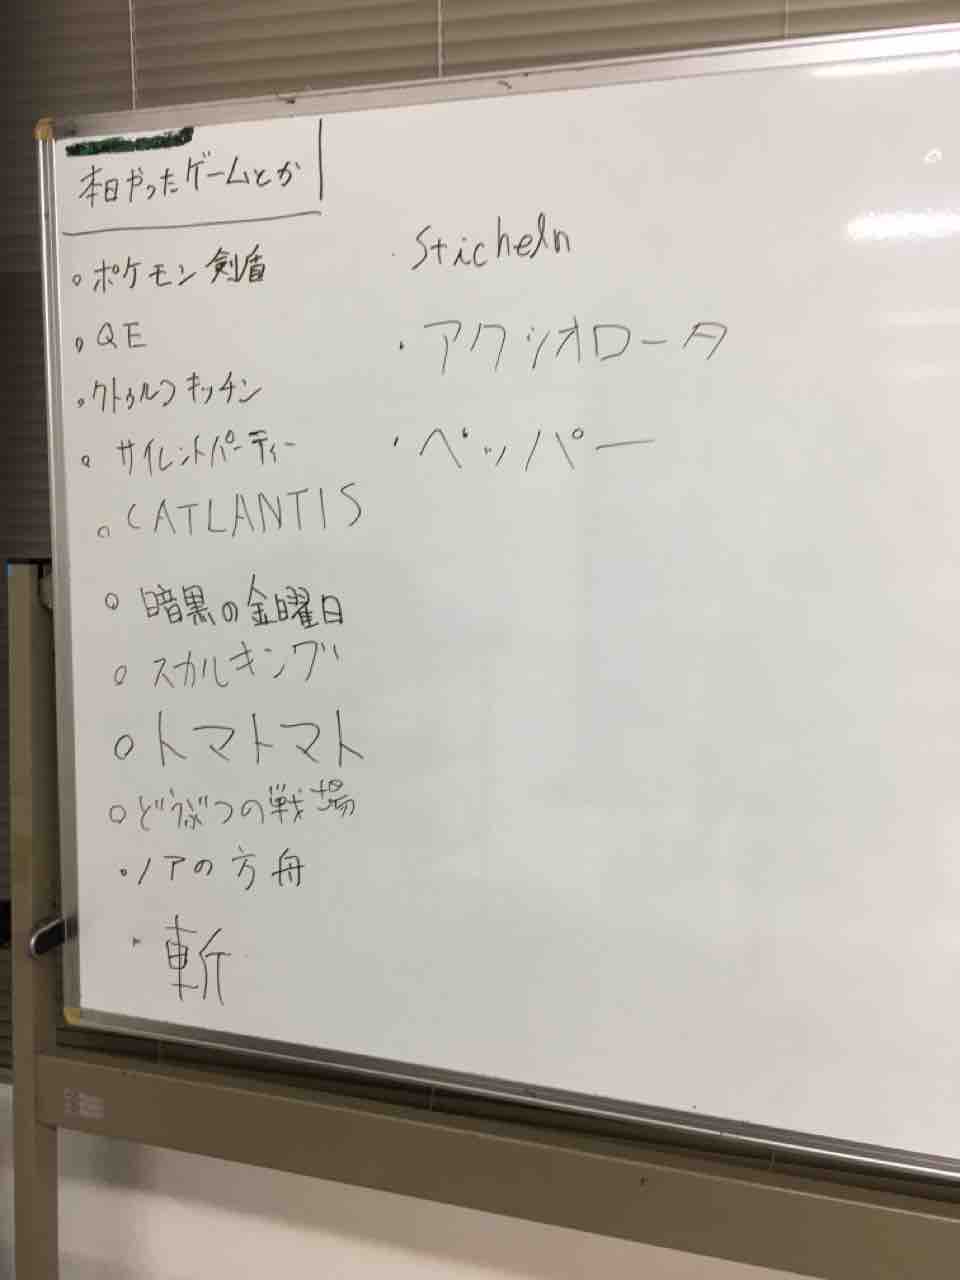 本日やったゲームとか
○ポケモン剣盾
○QE
○クトゥルフキッチン
○サイレントパーティー
○CATLANTIS
○暗黒の金曜日
○スカルキング
○トマトマト
○どうぶつの戦場
・ノアの方舟
・斬
・Sticheln
・アクシオロータ
・ペッパー